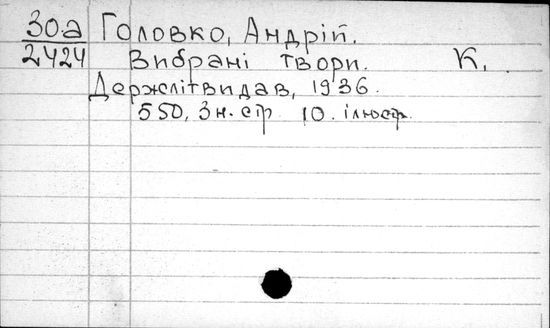 30a Головко, Андрій.
2424 Вибрані твори. К.
Держлітвидав, 1936.
550, 3 н. стр. 10. ілюстр.